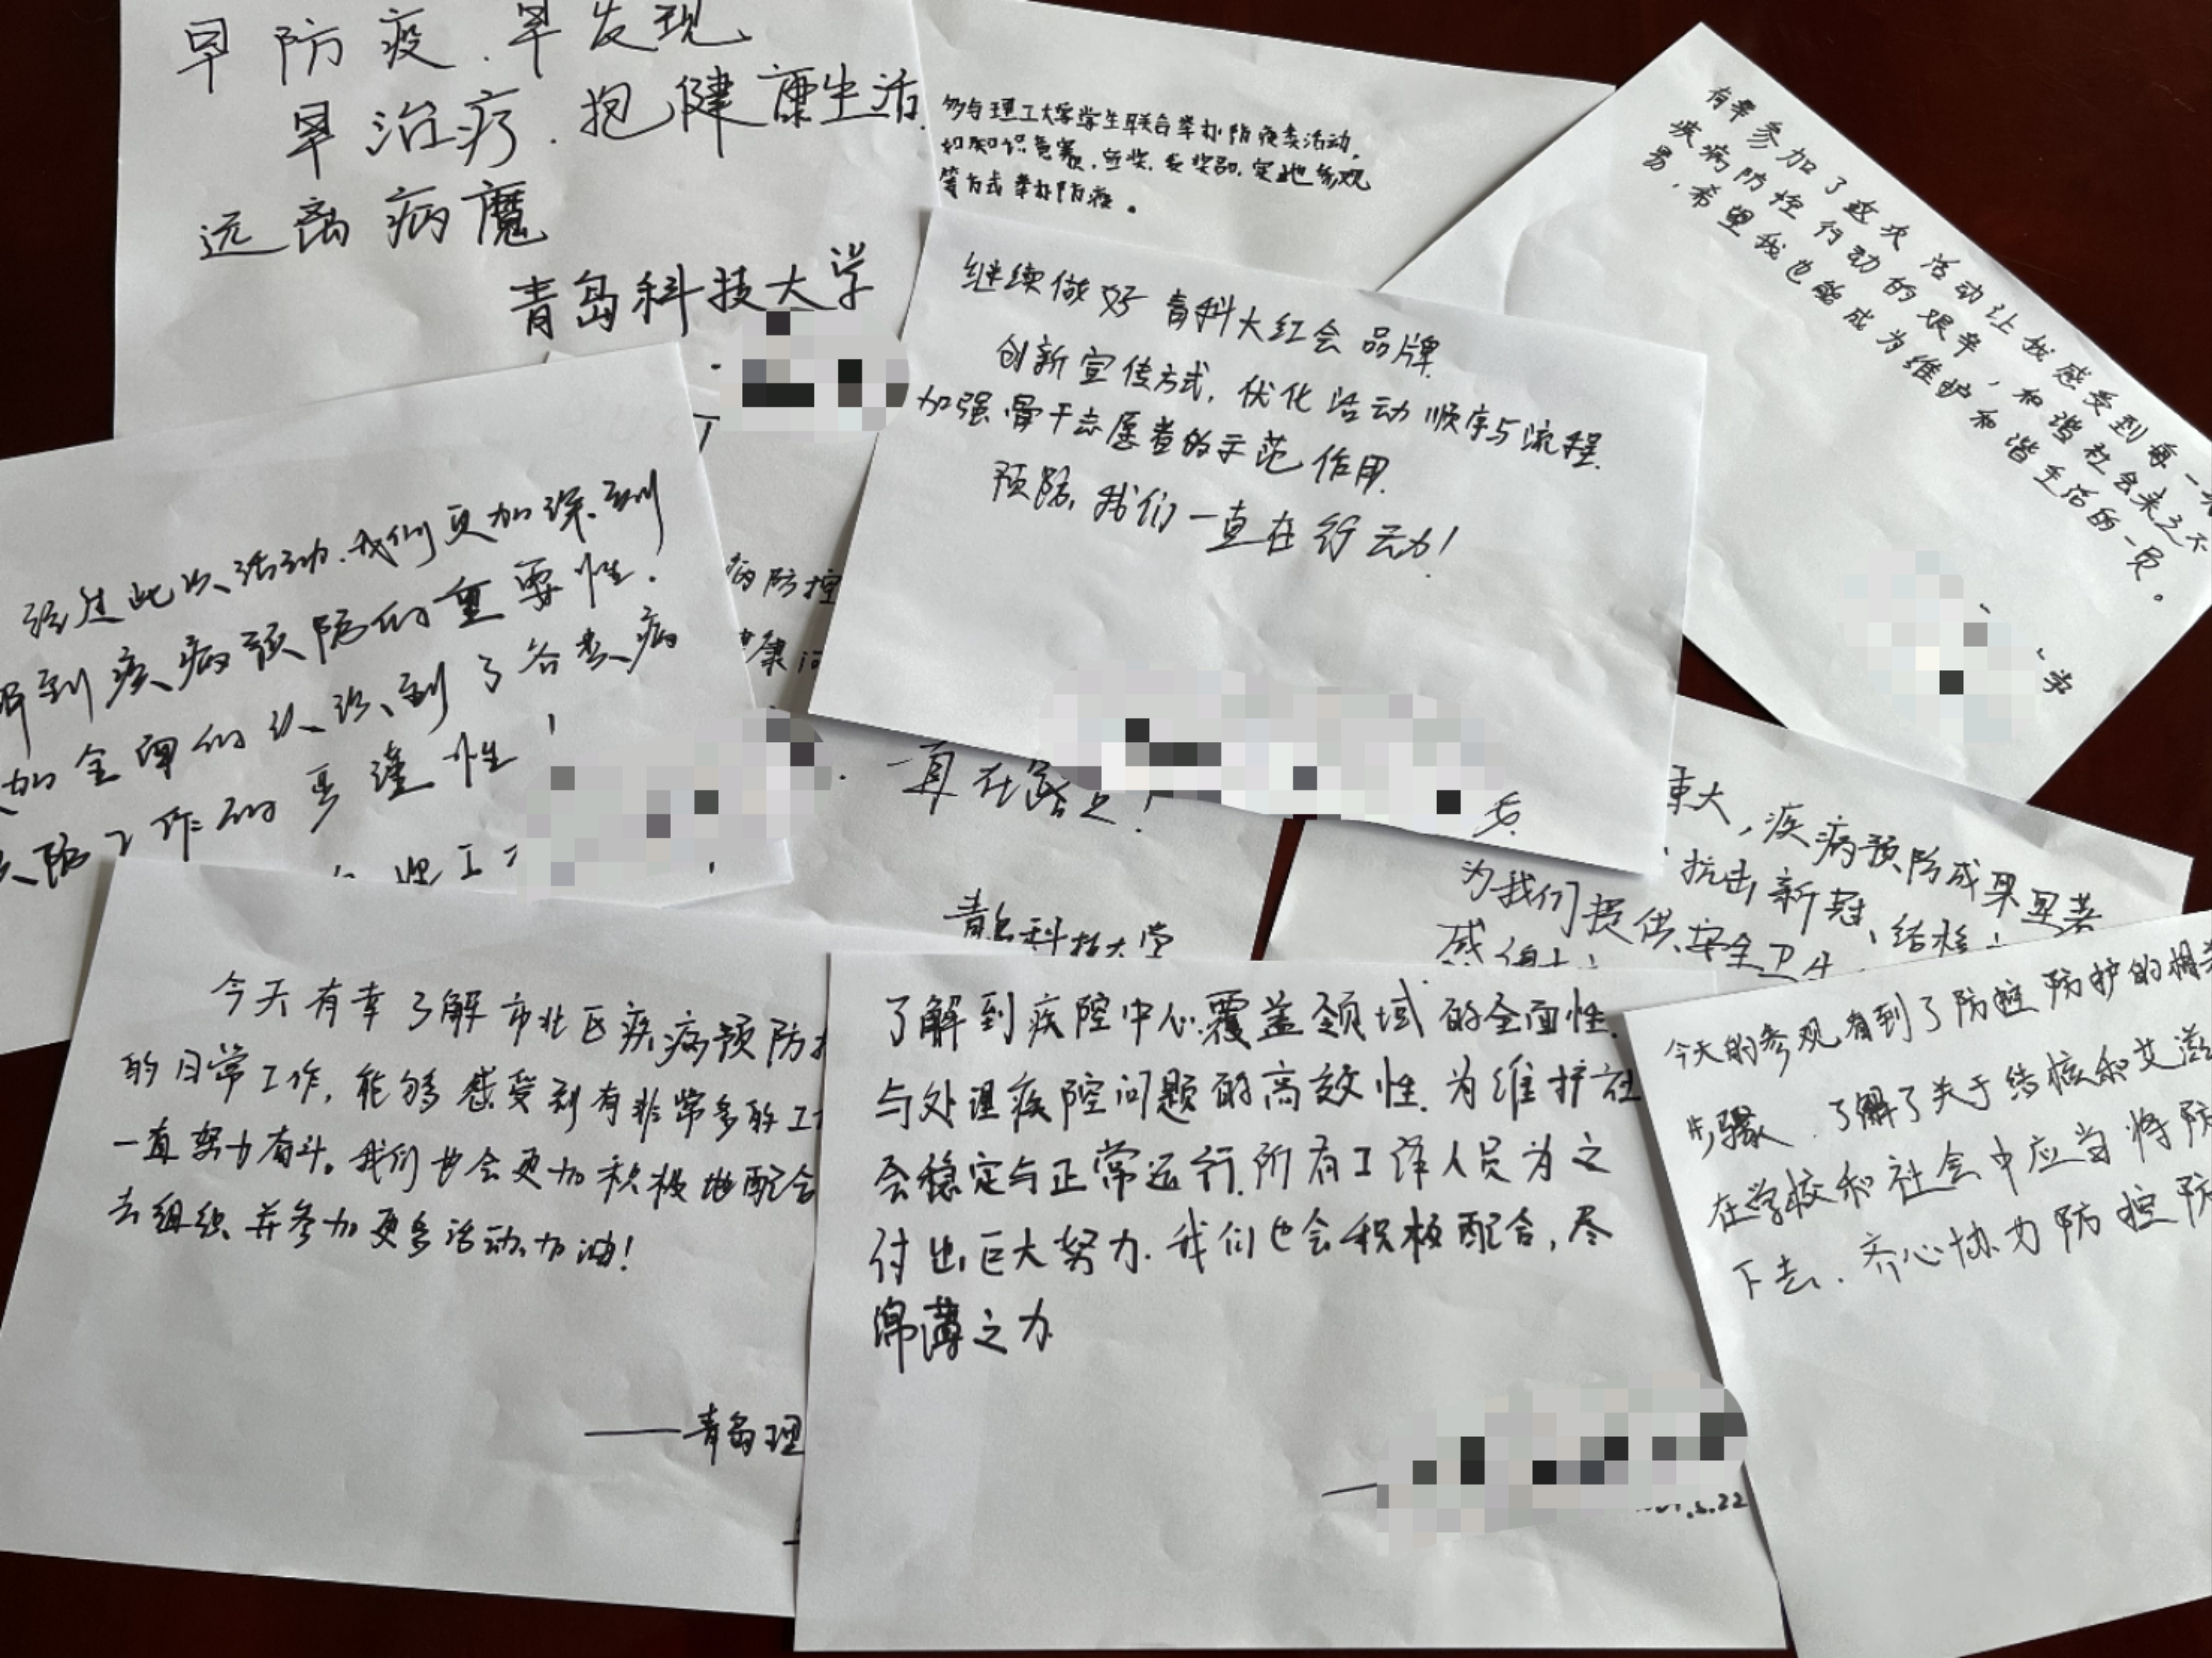 早防疫.早发现、
早治疗.抱健康生活.
远离病魔
青岛科技大学
多与理工大学学生联合举办防疫类活动,
如知识竞赛,实地参观
等方式举办防疫。
有幸参加了这次活动让我感受到每一
疾病防控行动的艰辛,和谐社会来之不
易,希望我也能成为维护和谐生活的一员。
学
继续做好青科大红会品牌.
创新宣传方式,优化活动顺序与流程.
加强骨干志愿者的示范作用.
预防,我们一直在行动!
经过此次活动.我们更加深刻
到疾病预防的重要性.
加全面的认识到了各类病
防工作的严谨性!
理工
病防控
康问
一直在路上!
青岛科技大学
重大,疾病预防成果显著
抗击新冠、结核
为我们提供安全卫生
感谢
今天有幸了解市北区疾病预防
的日常工作,能够感受到有非常多的工
一直努力奋斗。我们也会更加积极地配合
去组织并参加更多活动,加油!
——青岛理
了解到疾控中心覆盖领域的全面性.
与处理疾控问题的高效性.为维护社
会稳定与正常运行.所有工作人员为之
付出巨大努力.我们也会积极配合,尽
绵薄之力
.22
今天的参观,看到了防控防护的相关
步骤.了解了关于结核和艾滋
在学校和社会中应当将防
下去.齐心协力防控防